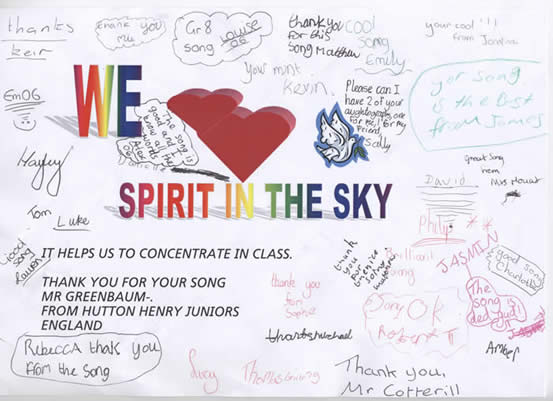 thanks
keir
thank you
Gr8
song Louise
06
thank you
for this
song Matthew
cool
song
Emily
your cool !!!
from
your mint
Kevin.
EmOG
WE
The song is
good and I
know all the
words
Please can I
have 2 of your
one
for me, 1 for my
friend
Sally
yor song
is the best
from James
Hayley
great song
from
Mrs Mouat
David
SPIRIT IN THE SKY
Tom
Luke
Philip
Good
song
Lauren
IT HELPS US TO CONCENTRATE IN CLASS.
thank
you
for
brilliant
song
JASMIN
good song
Charlotte
THANK YOU FOR YOUR SONG
MR GREENBAUM-.
FROM HUTTON HENRY JUNIORS
ENGLAND
thank you
from
Sophie
Song OK
Robert T
The
song is
thanks michael
Amber
RebeccA thank you
foR the Song
Lucy
Thank you,
Mr Cotterill